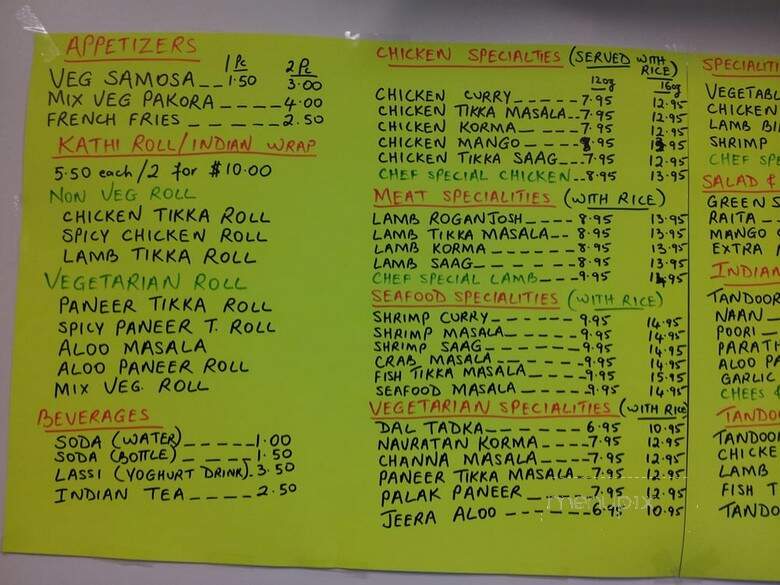 APPETIZERS 1 Pc 2 Pc
VEG SAMOSA 1.50 3.00
MIX VEG PAKORA 4.00
FRENCH FRIES 2.50
KATHI ROLL/INDIAN WRAP
5.50 each/2 for $10.00
NON VEG ROLL
CHICKEN TIKKA ROLL
SPICY CHICKEN ROLL
LAMB TIKKA ROLL
VEGETARIAN ROLL
PANEER TIKKA ROLL
SPICY PANEER T. ROLL
ALOO MASALA
ALOO PANEER ROLL
MIX VEG. ROLL
BEVERAGES
SODA (WATER) 1.00
SODA (BOTTLE) 1.50
LASSI (YOGHURT DRINK) 3.50
INDIAN TEA 2.50
CHICKEN SPECIALTIES (SERVED WITH RICE)
12oz 16oz
CHICKEN CURRY 7.95 12.95
CHICKEN TIKKA MASALA 7.95 12.95
CHICKEN KORMA 7.95 12.95
CHICKEN MANGO 8.95 13.95
CHICKEN TIKKA SAAG 7.95 12.95
CHEF SPECIAL CHICKEN 8.95 13.95
MEAT SPECIALITIES (WITH RICE)
LAMB ROGANJOSH 8.95 13.95
LAMB TIKKA MASALA 8.95 13.95
LAMB KORMA 8.95 13.95
LAMB SAAG 8.95 13.95
CHEF SPECIAL LAMB 9.95 14.95
SEAFOOD SPECIALITIES (WITH RICE)
SHRIMP CURRY 9.95 14.95
SHRIMP MASALA 9.95 14.95
SHRIMP SAAG 9.95 14.95
CRAB MASALA 9.95 14.95
FISH TIKKA MASALA 9.95 15.95
SEAFOOD MASALA 9.95 14.95
VEGETARIAN SPECIALITIES (WITH RICE)
DAL TADKA 6.95 10.95
NAVRATAN KORMA 7.95 12.95
CHANNA MASALA 7.95 12.95
PANEER TIKKA MASALA 7.95 12.95
PALAK PANEER 7.95 12.95
JEERA ALOO 6.95 10.95
SPECIALITI
VEGETABL
CHICKEN
LAMB BI
SHRIMP
CHEF SPE
SALAD &
GREEN S
RAITA
MANGO
EXTRA
INDIAN
TANDOOR
NAAN
POORI
PARATH
ALOO PA
GARLIC
CHEES
TANDO
TANDOO
CHICKE
LAMB
FISH T
TANDO
menupix